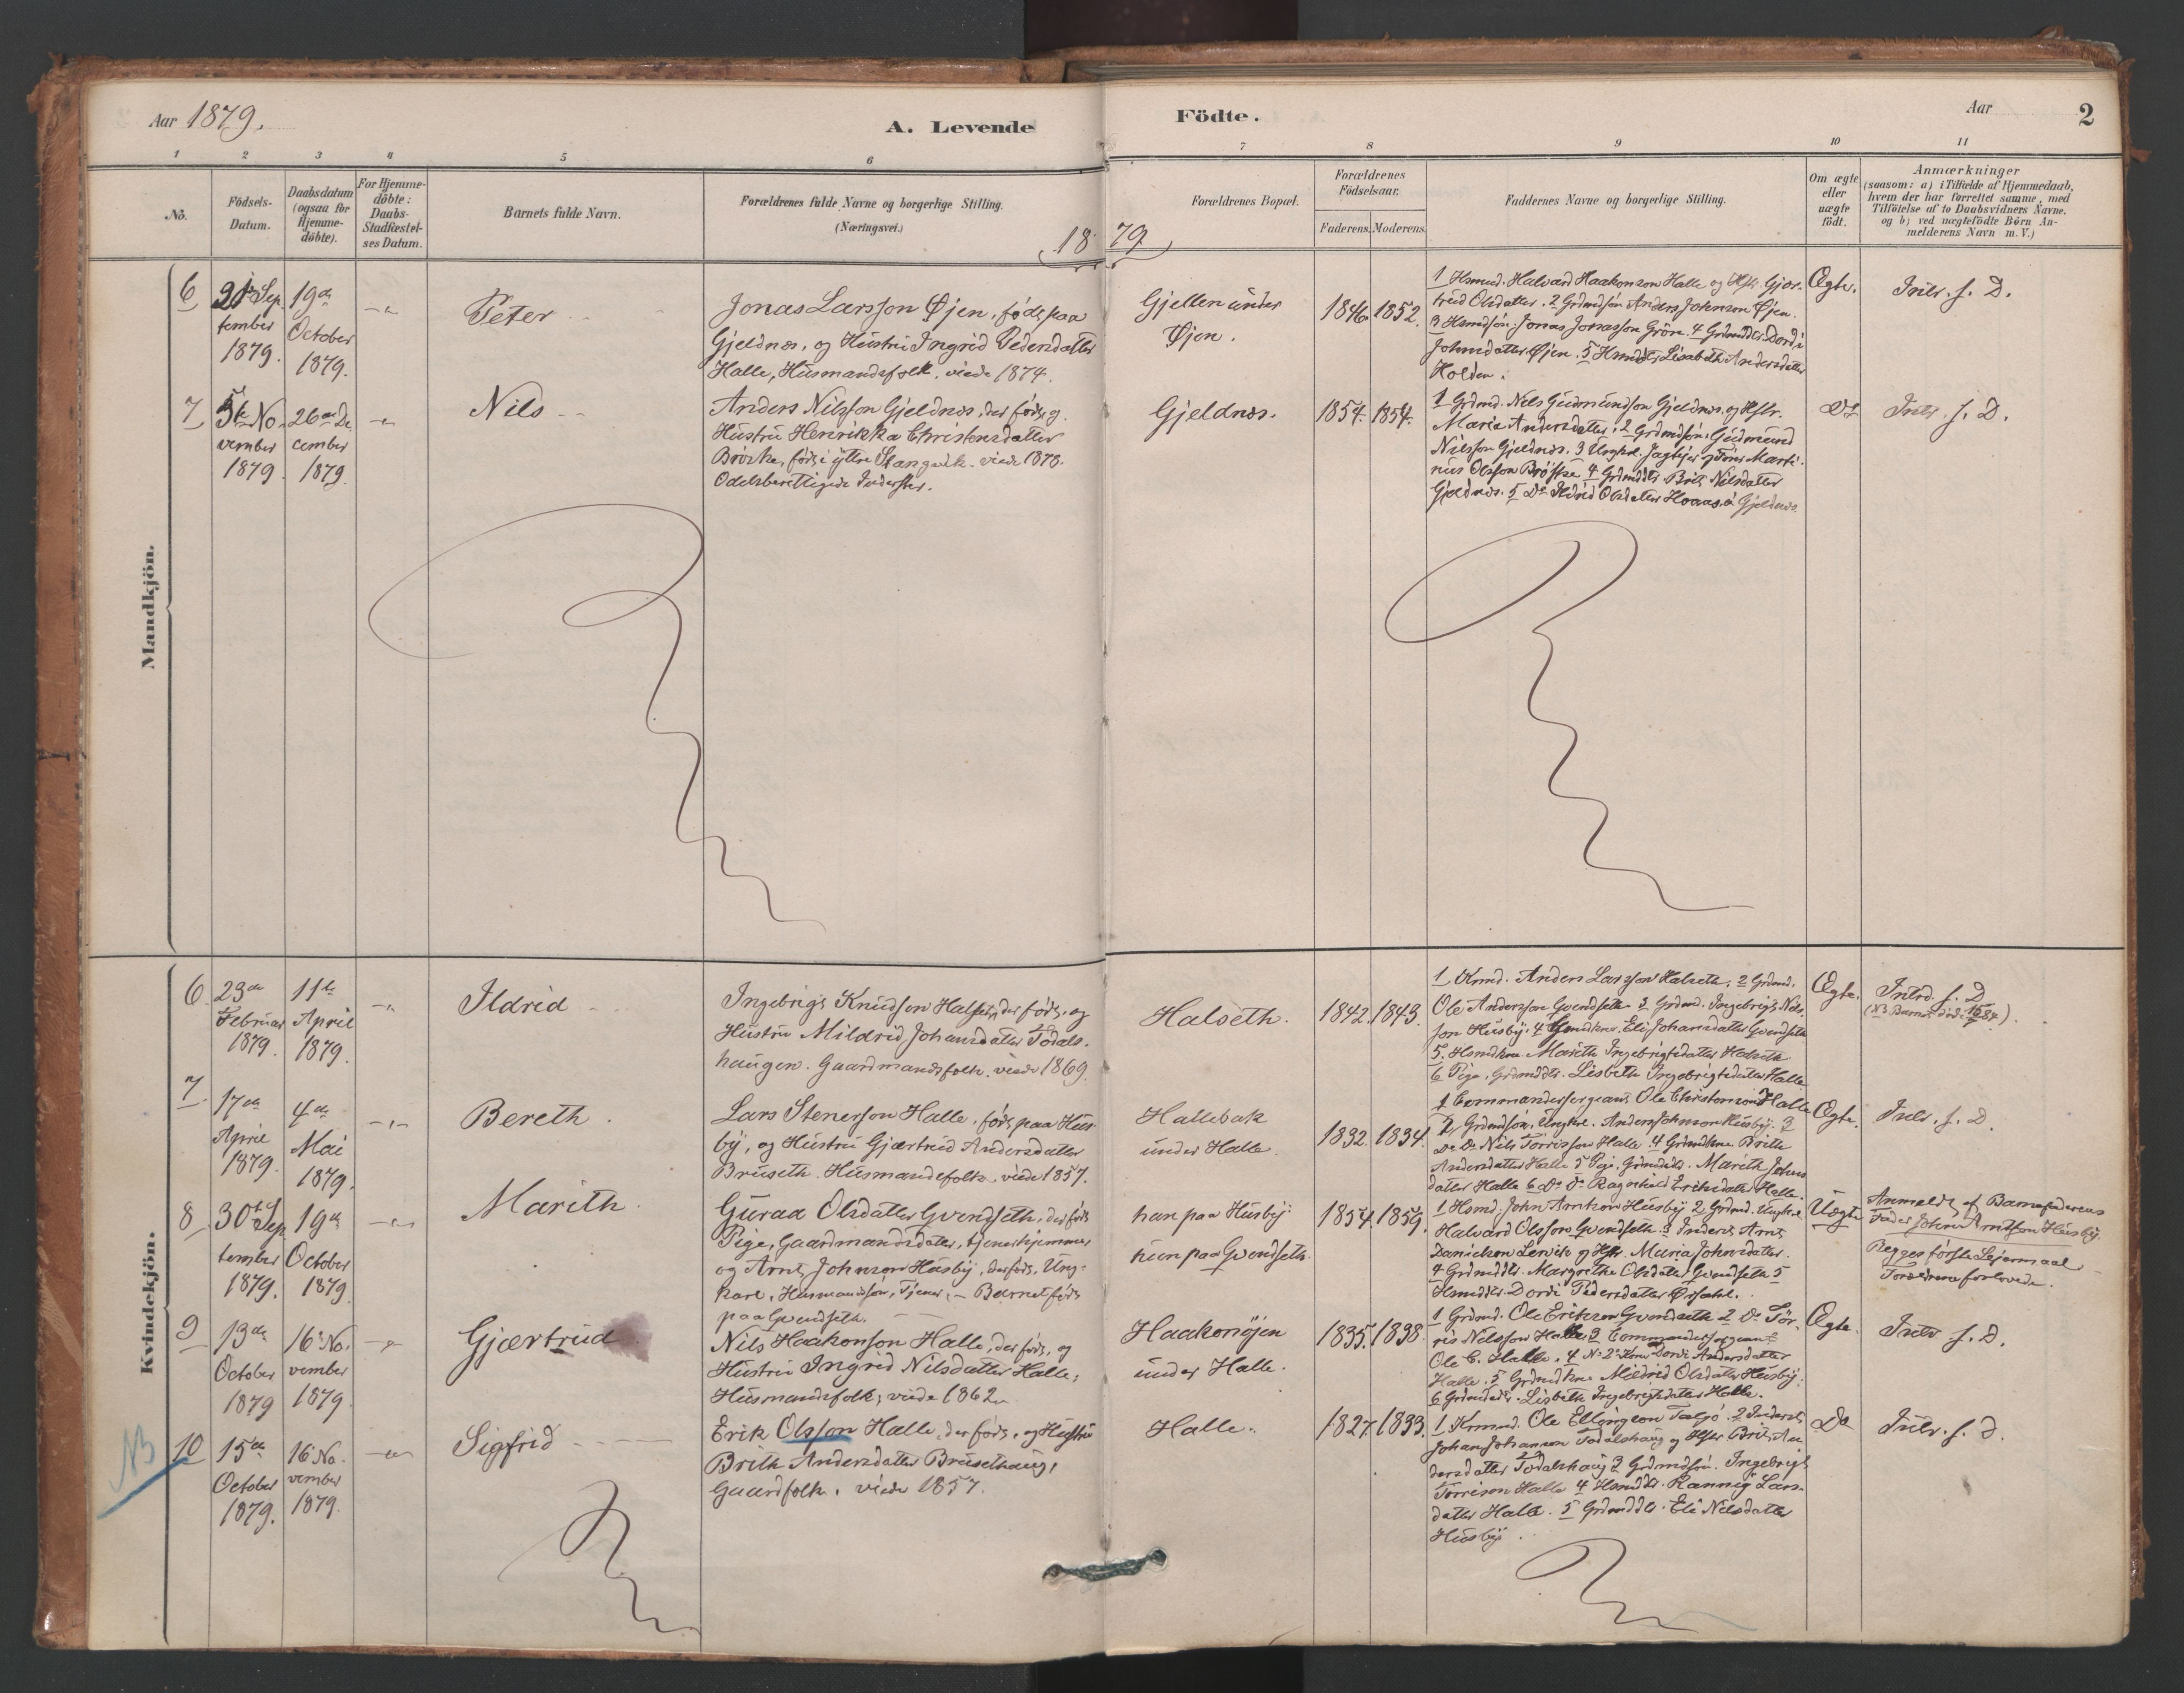 Aar 1879.
A. Levende Födte.
Aar
2
1 2 3 4 5 6 7 8 9 10 11
No.
Födsels-
Datum.
Daabsdatum
(ogsaa for
Hjemme-
döbte).
For Hjemme-
döbte:
Daabs-
Stadfæstel-
ses Datum.
Barnets fulde Navn.
Forældrenes fulde Navne og borgerlige Stilling.
(Næringsvei.)
Forældrenes Bopæl.
Forældrenes
Födselsaar.
Faderens. Moderens.
Faddernes Navne og borgerlige Stilling.
Om ægte
eller
uægte
födt.
Anmærkninger
(saasom: a) i Tilfælde af Hjemmedaab,
hvem der har forrettet samme, med
Tilföielse af to Daabsvidners Navne,
og b) ved uægtefödte Börn An-
melderens Navn m. V.)
1879
Mandkjön.
6
21de Sep
tember
1879.
19de
October
1879.
Peter
Jonas Larsson Øjen, föds paa
Gjeldnæs, og Hustru Ingrid Pedersdatter
Halle, Husmandsfolk, viede 1874.
Gjellen under
Øjen.
1846. 1852.
1 Hsmd. Halvard Haakonson Halle og Hstr. Gjær-
trud Olsdatter. 2 Grdmdsön Anders Johnson Øjen.
3 Hsmdsön Jonas Jonasson Gröre. 4 Grdmddtr. Dordi
Johnsdatter Øjen. 5 Hsmddtr. Lisabeth Andersdatter
Holden.
Ægte.
Intr. f. D.
7
5te No
vember
1879.
26de De
cember
1879.
Nils
Anders Nilsson Gjeldnæs, der föds, og
Hustru Henrikka Christensdatter
föds i yttre Stangvik, viede 1878.
Odelsberettigede Inderster.
Gjeldnæs.
1854. 1854.
1 Grdmd. Nils Gudmundson Gjeldnæs og Hstr.
Marie Andersdatter. 2 Grdmdsön Gudmund
Nilsson Gjeldnæs. 3 Ungkrl.
nus Olsson 4 Grdmddtr. Brit Nilsdatter
Gjeldnæs. 5 Do Ildrid Olsdatter Gjeldnæs.
Do
Intr. f. D.
Kvindekjön.
6
23de
Februar
1879.
11te
April
1879.
Ildrid
Ingebrigt Knudson Halseth, der föds, og
Hustru Mildrid Johansdatter Todals-
haugen. Gaardmandsfolk. viede 1869.
Halseth.
1842. 1843.
1 Anders Larsson Halseth. 2 Grdmd.
Ole Andersson Gvendseth. 3 Grdmd. Ingebrigt Nils-
son Husby. 4 Eli Johansdatter Gvendseth
5. Hsmdkone Marith Ingebrigtsdatter Halseth
6 Pige, Grdmddtr. Lisbeth Ingebrigtsdatter Halle
Ægte.
Intrd. f. D
7
17de
April
1879.
4de
Mai
1879.
Bereth
Lars Stenerson Halle, föds paa Hus-
by, og Hustru Gjærtrud Andersdatter
Bruseth. Husmandsfolk, viede 1857.
Hallebak
under Halle.
1832. 1834.
1 Commandersergeant Ole Christonson Halle
2, Grdmdsön, Ungkrl. Anders Johnson Husby. 3
Do Do Nils Torrisson Halle. 4 Grdmdkone Brith
Andersdatter Halle 5 Pige, Grdmddtr. Marith Johns
datter Halle 6 Do Do Ragnhild Eriksdatter Halle.
Ægte.
Intr. f. D.
8
30te Sep
tember
1879.
19de
October
1879.
Marith
Guraa Olsdatter Gvendseth, der föds
Pige, Gaardmandsdatter, tjener hjemme,
og Arnt Johnson Husby, der föds, Ung-
karl, Husmandsön, Tjener. — Barnet föds
paa Gvendseth.
han paa Husby
hun paa Gvendseth.
1854. 1859.
1 Hsmd. John Arntson Husby 2 Grdmd. Ungkrl
Halvard Olsson Gvendseth. 3 Inderst Arnt
Danielsen Lervik og Hstr. Maria Johnsdatter.
4 Grdmddtr. Margrethe Olsdatter Gvendseth 5
Hsmddtr. Dordi Pedersdatter
Uægte
Anmeldt af Barnefaderens
Fader John Arntson Husby.
Begges förste Lejermaal
Forældrene forlovede.
9
13de
October
1879
16de No-
vember
1879.
Gjærtrud
Nils Haakonson Halle, der föds, og
Hustru Ingrid Nilsdatter Halle;
Husmandsfolk; viede 1862
Haakonöjen
under Halle.
1835. 1838.
1 Grdmd. Ole Erikson Gvendseth 2 Do Tör-
ris Nilsson Halle 3 Commandersergeant
Ole C. Halle. 4 Dordi Andersdatter
Halle. 5 Grdmdkone Mildrid Olsdatter Husby.
6 Grdmddtr. Lisbeth Ingebrigtsdatter Halle.
Ægte.
Intr. f. D.
NB
10
15de
October
1879.
16de No-
vember
1879.
Sigfrid
Erik Olsson Halle, der föds, og Hustru
Brith Andersdatter Brusethaug,
Gaardfolk. viede 1857.
Halle.
1827. 1833.
1 Ole Ellingson Talgö. 2 Inderst
Johan Johanson Todalshaug og Hstr. Brit An-
dersdatter Todalshaug 3 Grdmdsön. Ingebrigt
Torrison Halle 4 Hsmddtr. Rannig Lars-
datter Halle. 5 Grdmddtr. Eli Nilsdatter
Husby.
Do
Intr. f. D.